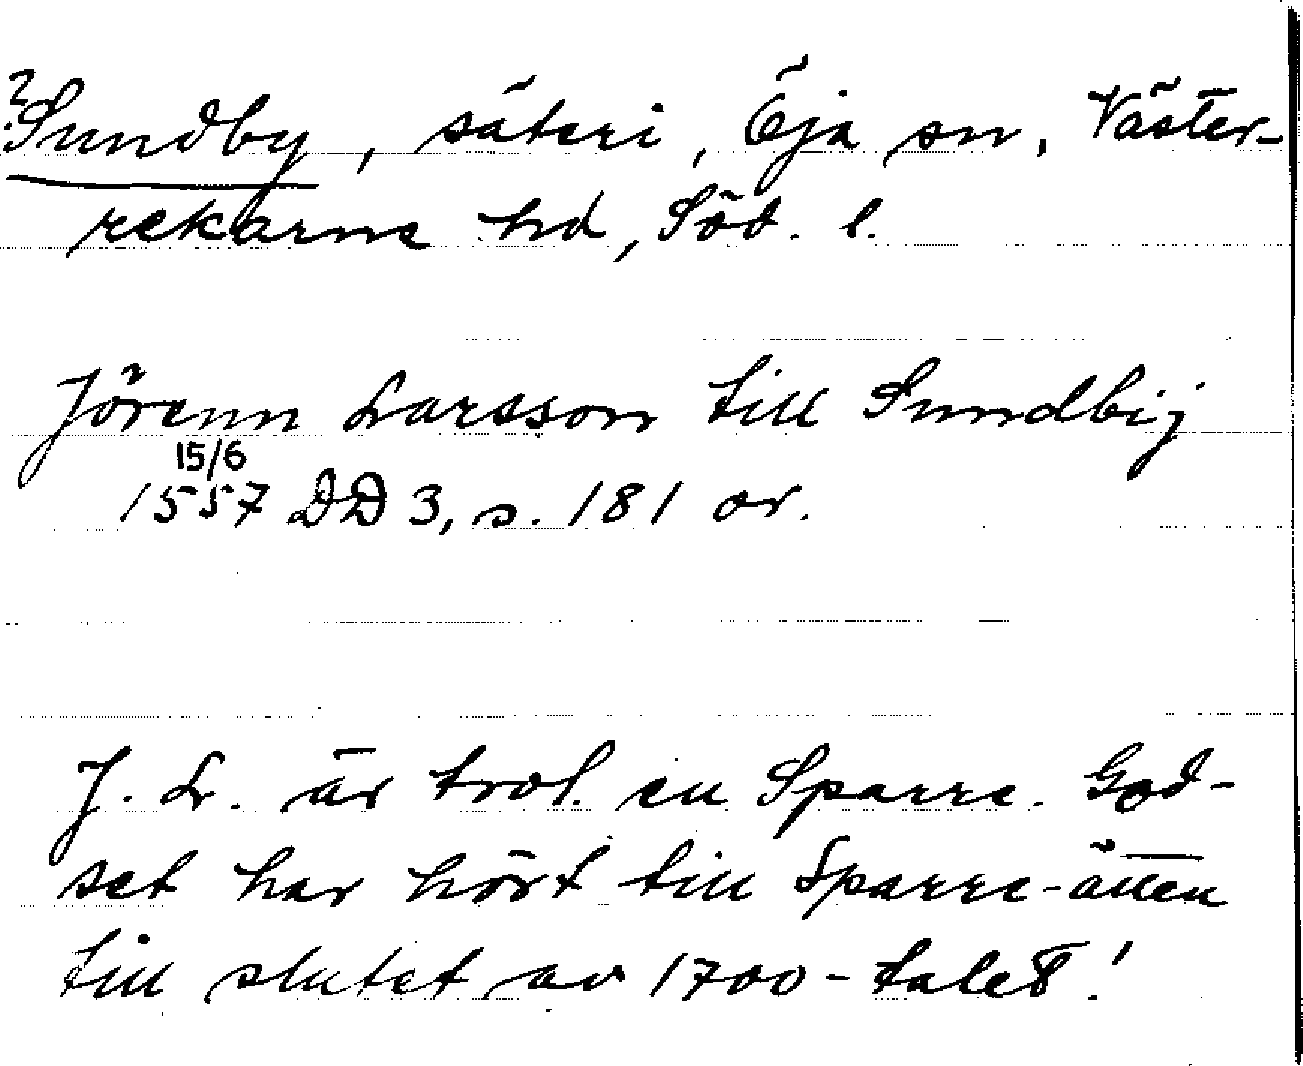 ?Sundby, säteri, Öja sn, Väster-
rekarne hd, Söd. l.
Jörenn Larsson till Sundbij
15/6
1557 DD 3, s. 181 or.
J. L. är trol. en Sparre. God-
set har hört till Sparre-ätten
till slutet av 1700-talet!